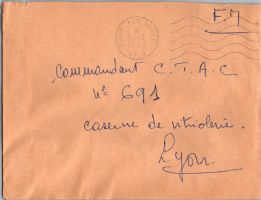 F.M
Commandant C.T.A.C
n° 691
caserne de vitriolerie.
Lyon